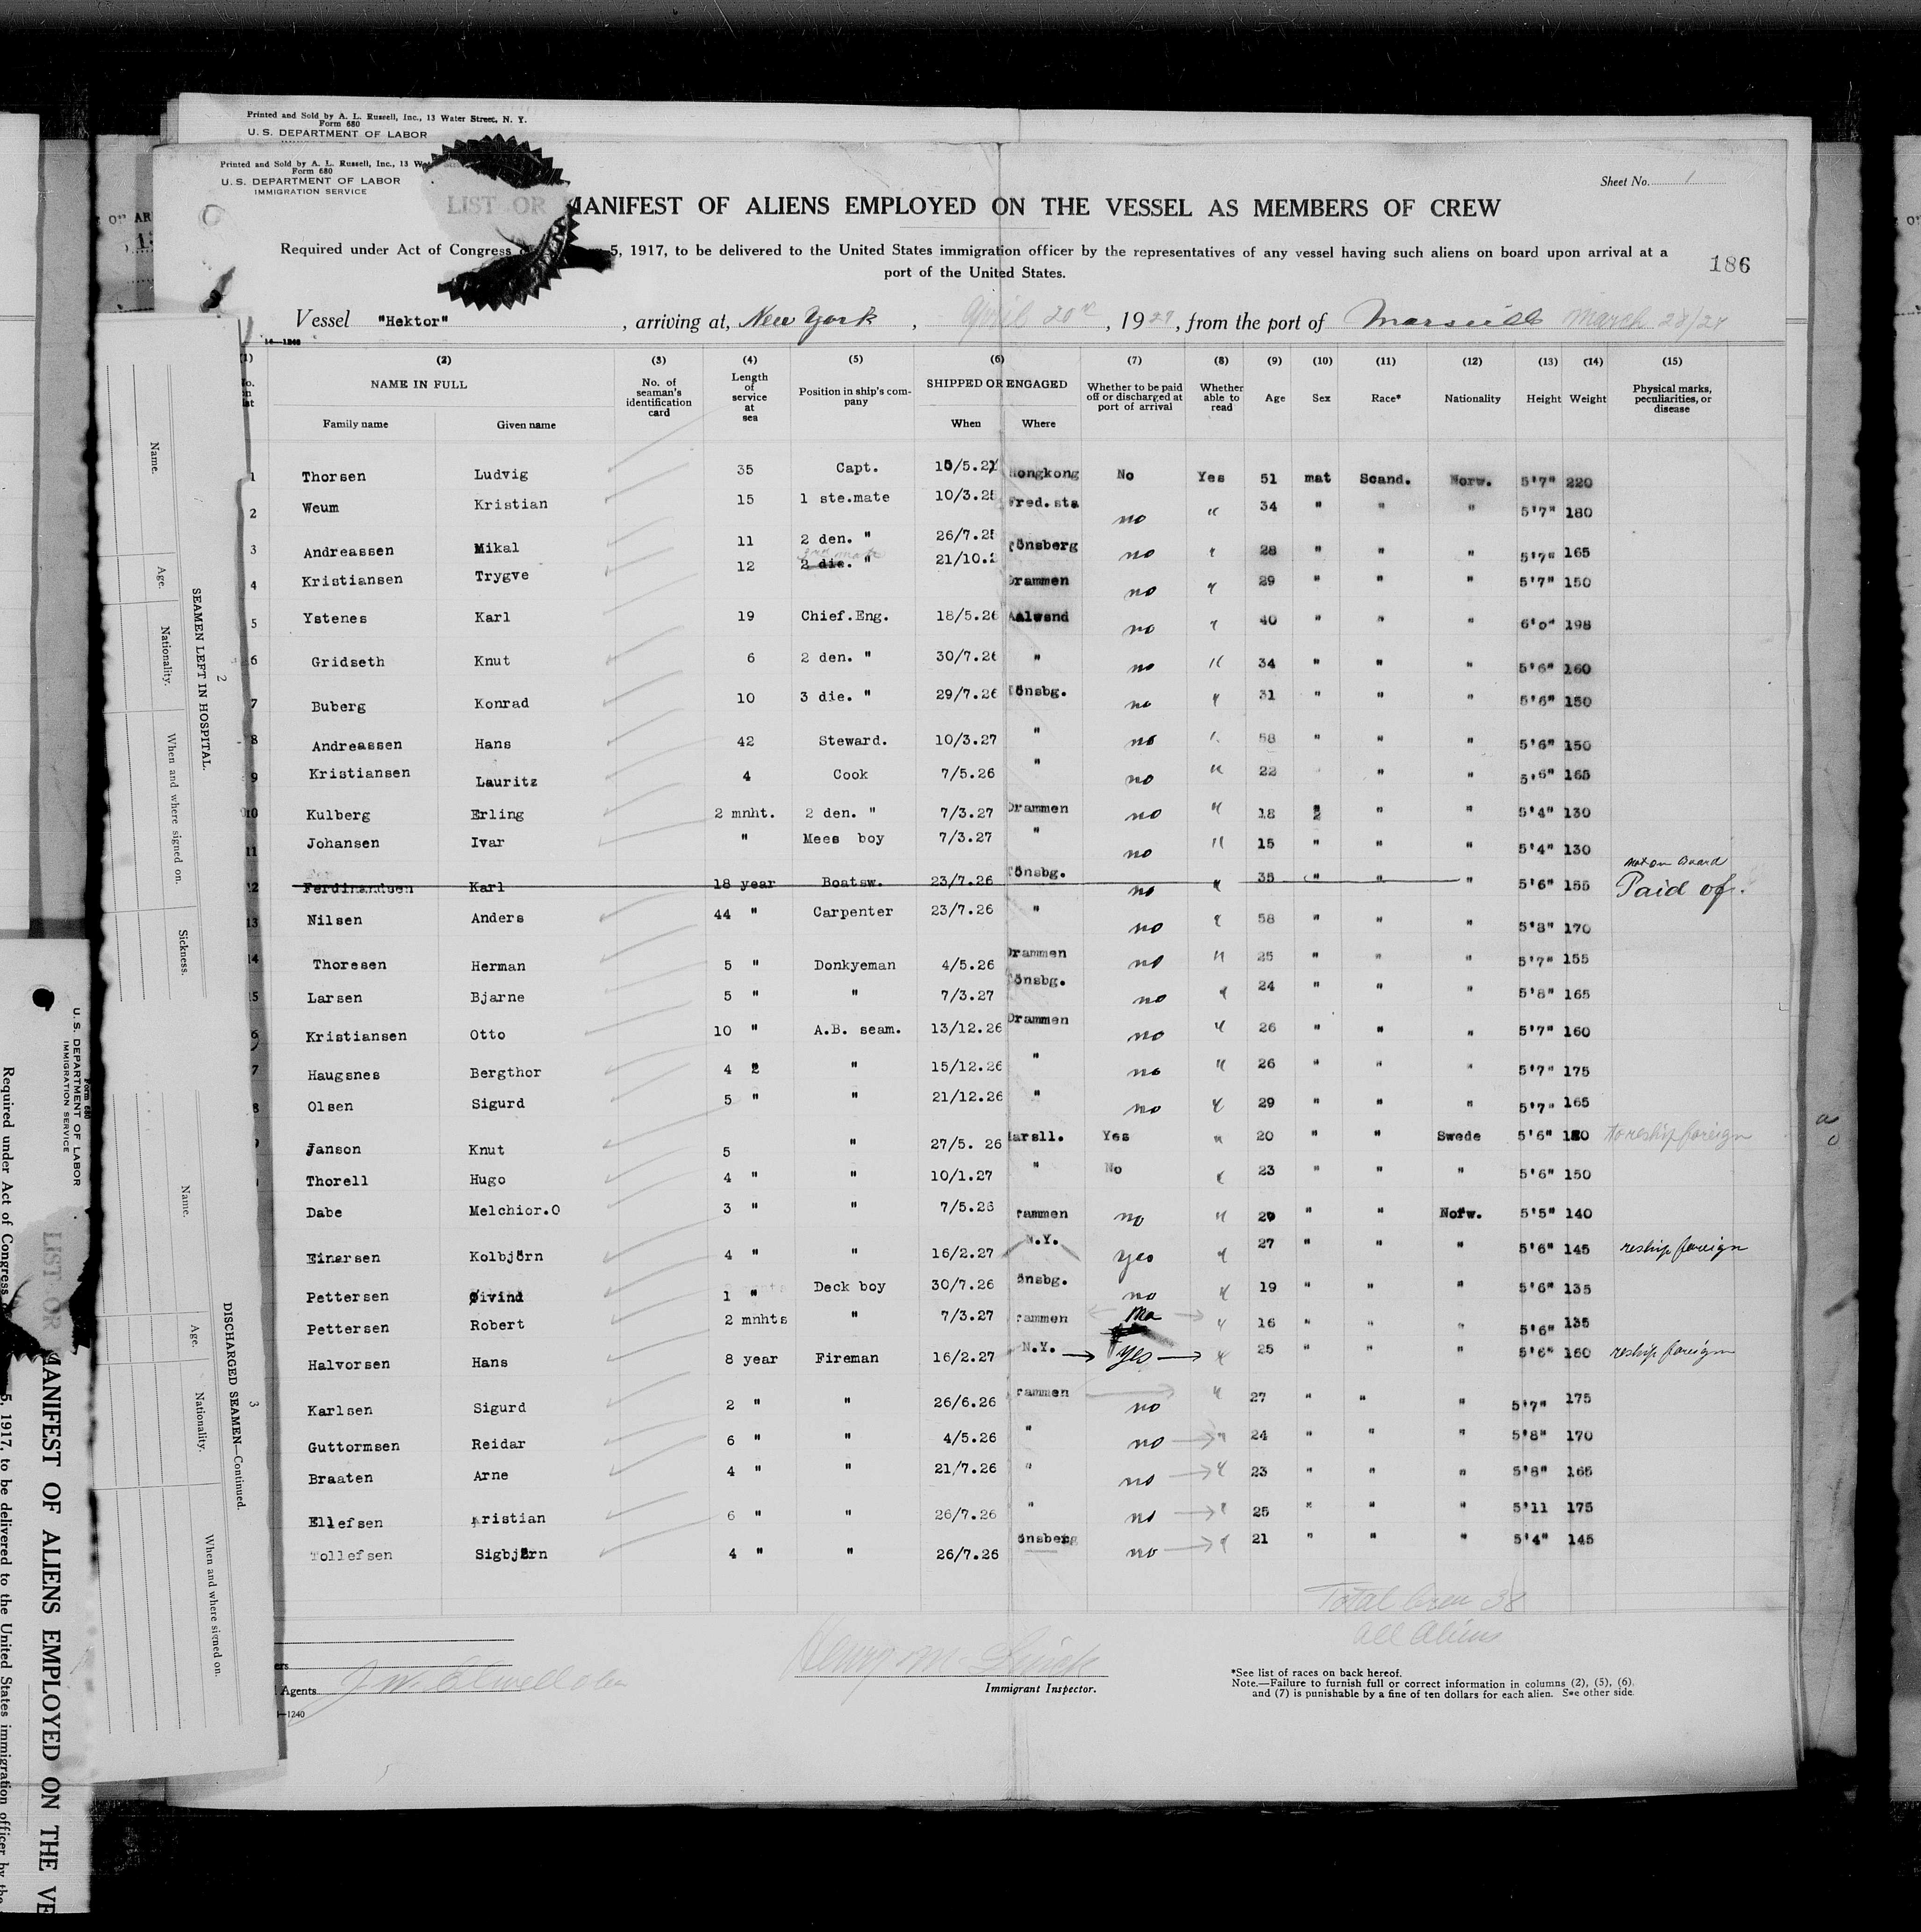 Printed and Sold by A. L. Russell, Inc., 13 Water Street, N. Y.
Form 680
U. S. DEPARTMENT OF LABOR
Printed and Sold by A. L. Russell, Inc., 13
Form 680
U. S. DEPARTMENT OF LABOR
IMMIGRATION SERVICE
Sheet No. 1
LIST OR MANIFEST OF ALIENS EMPLOYED ON THE VESSEL AS MEMBERS OF CREW
Required under Act of Congress 5, 1917, to be delivered to the United States immigration officer by the representatives of any vessel having such aliens on board upon arrival at a
port of the United States.
186
Vessel "Hektor", arriving at, New York, April 20th, 1927, from the port of Marseille March 28/27
(1) (2) (3) (4) (5) (6) (7) (8) (9) (10) (11) (12) (13) (14) (15)
NAME IN FULL No. of seaman's identification card Length of service at sea Position in ship's company SHIPPED OR ENGAGED Whether to be paid off or discharged at port of arrival Whether able to read Age Sex Race* Nationality Height Weight Physical marks, peculiarities, or disease
Family name Given name When Where
1 Thorsen Ludvig 35 Capt. Hongkong No Yes 51 mat Scand. Norw. 5'7" 220
2 Weum Kristian 15 1 ste.mate 10/3.25 Fred.sta no " 34 " " " 5'7" 180
3 Andreassen Mikal 11 2 den. " 26/7.25 Tönsberg no " 28 " " " 5'7" 165
4 Kristiansen Trygve 12 3rd mate 2 die. " 21/10.2 Drammen no " 29 " " " 5'7" 150
5 Ystenes Karl 19 Chief.Eng. 18/5.26 Aalwsnd no " 40 " " " 6'0" 198
6 Gridseth Knut 6 2 den. " 30/7.26 " no " 34 " " " 5'6" 160
7 Buberg Konrad 10 3 die. " 29/7.26 Tönsbg. no " 31 " " " 5'6" 150
8 Andreassen Hans 42 Steward. 10/3.27 " no " 58 " " " 5'6" 150
9 Kristiansen Lauritz 4 Cook 7/5.26 " no " 22 " " 5'6" 165
10 Kulberg Erling 2 mnht. 2 den. " 7/3.27 Drammen no " 18 " " " 5'4" 130
11 Johansen Ivar " Mees boy 7/3.27 " no " 15 " " " 5'4" 130
not on board
12 Ferdinandsen Karl 18 year Boatsw. 23/7.26 Tönsbg. no " 35 " " " 5'6" 155 Paid of.
13 Nilsen Anders 44 " Carpenter 23/7.26 " no " 58 " " " 5'8" 170
14 Thoresen Herman 5 " Donkyeman 4/5.26 Drammen no " 25 " " " 5'7" 155
5 Larsen Bjarne 5 " " 7/3.27 Tönsbg. no " 24 " " " 5'8" 165
6 Kristiansen Otto 10 " A.B. seam. 13/12.26 Drammen no " 26 " " " 5'7" 160
7 Haugsnes Bergthor 4 " " 15/12.26 " no " 26 " " " 5'7" 175
8 Olsen Sigurd 5 " " 21/12.26 " no " 29 " " " 5'7" 165
Janson Knut 5 " 27/5. 26 Marsll. Yes " 20 " " Swede 5'6" to reship foreign
Thorell Hugo 4 " " 10/1.27 " No " 23 " " " 5'6" 150
Dabe Melchior.O 3 " " 7/5.26 rammen no " 29 " " Norw. 5'5" 140
Einarsen Kolbjörn 4 " " 16/2.27 N.Y. yes " 27 " " " 5'6" 145 reship foreign
Pettersen Øivind 1 " Deck boy 30/7.26 önsbg. no " 19 " " " 5'6" 135
Pettersen Robert 2 mnhts " 7/3.27 rammen no " 16 " " " 5'6" 135
Halvorsen Hans 8 year Fireman 16/2.27 N.Y. yes " 25 " " " 5'6" 160 reship foreign
Karlsen Sigurd 2 " " 26/6.26 rammen no " 27 " " " 5'7" 175
Guttormsen Reidar 6 " " 4/5.26 " no " 24 " " " 5'8" 170
Braaten Arne 4 " " 21/7.26 " no " 23 " " " 5'8" 165
Ellefsen Kristian 6 " " 26/7.26 " no " 25 " " " 5'11 175
Tollefsen Sigbjörn 4 " " 26/7.26 önsberg no " 21 " " " 5'4" 145
Total Crew 38
all Aliens
Agents
Immigrant Inspector.
*See list of races on back hereof.
Note.—Failure to furnish full or correct information in columns (2), (5), (6),
and (7) is punishable by a fine of ten dollars for each alien. See other side.
—1240
2
SEAMEN LEFT IN HOSPITAL.
Name. Age. Nationality. When and where signed on. Sickness.
3
DISCHARGED SEAMEN—Continued.
Name. Age. Nationality. When and where signed on.
Form 680
U. S. DEPARTMENT OF LABOR
IMMIGRATION SERVICE
LIST OR MANIFEST OF ALIENS EMPLOYED ON THE VE
Required under Act of Congress 5, 1917, to be delivered to the United States immigration officer by the